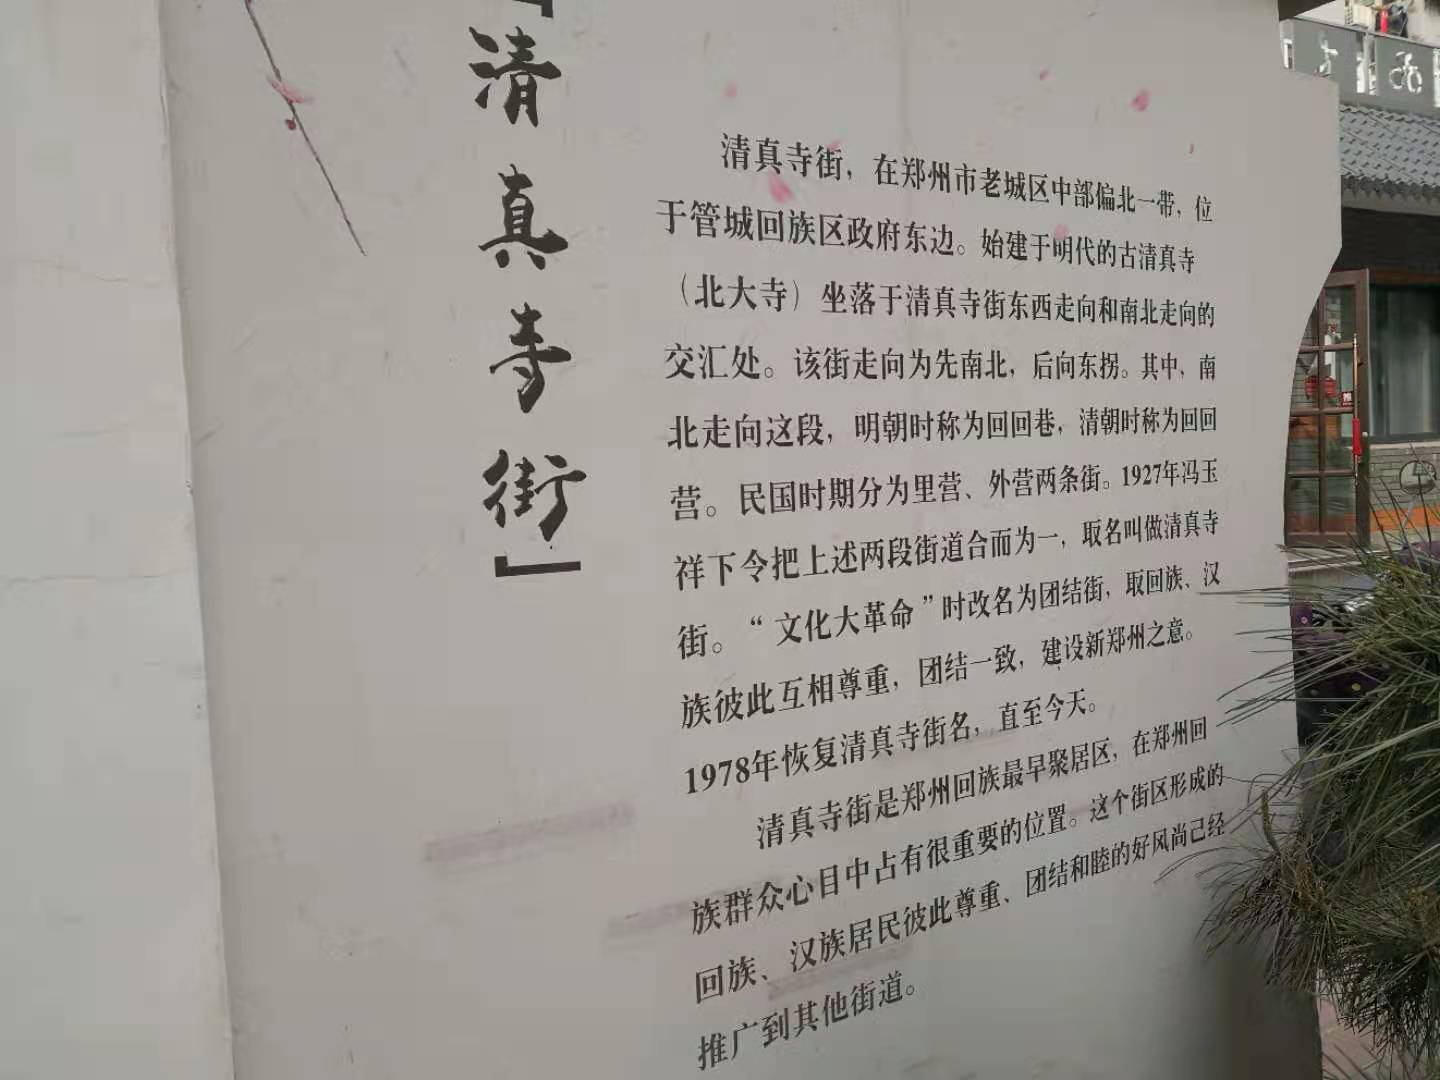 「清真寺街」
清真寺街，在郑州市老城区中部偏北一带，位
于管城回族区政府东边。始建于明代的古清真寺
（北大寺）坐落于清真寺街东西走向和南北走向的
交汇处。该街走向为先南北，后向东拐。其中，南
北走向这段，明朝时称为回回巷，清朝时称为回回
营。民国时期分为里营、外营两条街。1927年冯玉
祥下令把上述两段街道合而为一，取名叫做清真寺
街。“文化大革命”时改名为团结街，取回族、汉
族彼此互相尊重，团结一致，建设新郑州之意。
1978年恢复清真寺街名，直至今天。
清真寺街是郑州回族最早聚居区，在郑州回
族群众心目中占有很重要的位置。这个街区形成的
回族、汉族居民彼此尊重、团结和睦的好风尚己经
推广到其他街道。